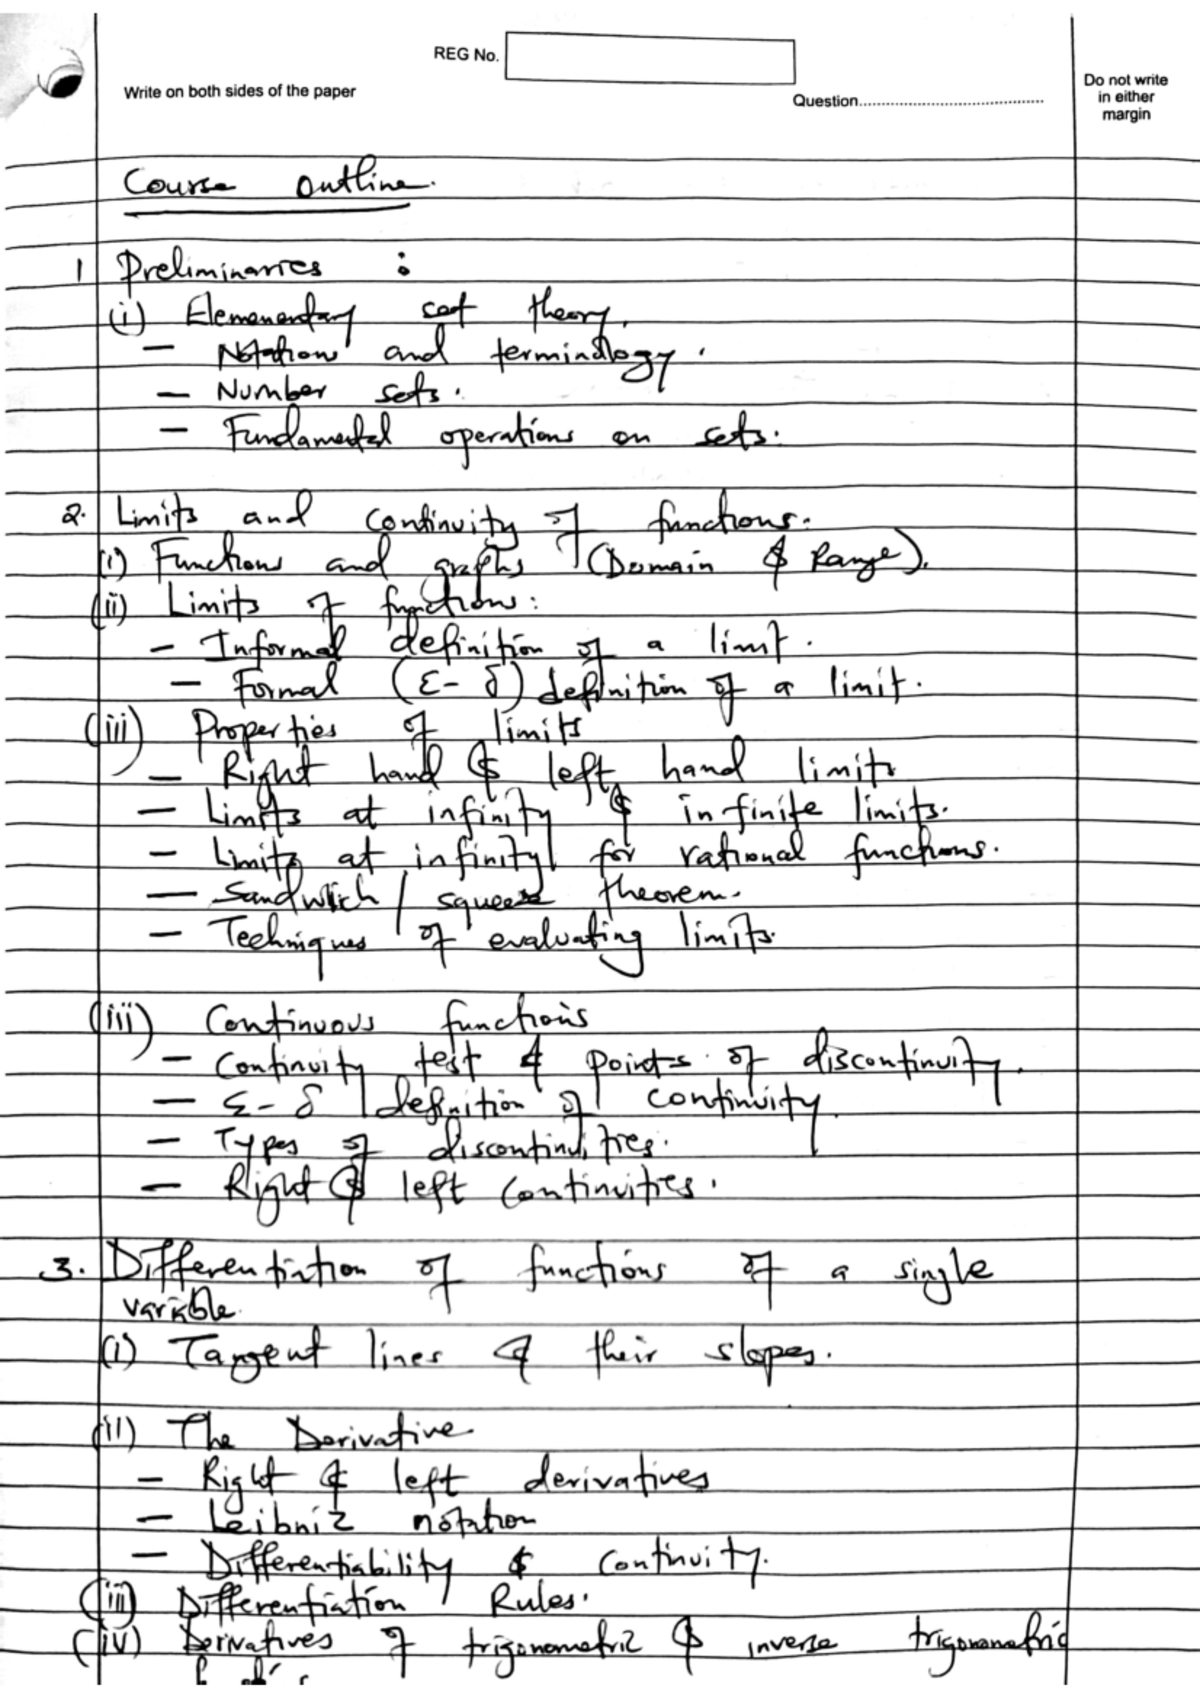 REG No.
Write on both sides of the paper
Question
Do not write
in either
margin
Course outline.
1 Preliminaries :
(i) Elemenentary set theory.
— Notation and terminology.
— Number sets.
— Fundamental operations on sets.
2. Limits and continuity of functions.
(i) Functions and graphs (Domain & Range).
(ii) Limits of functions:
— Informal definition of a limit.
— Formal (ε-δ) definition of a limit.
(iii) Properties of limits
— Right hand & left hand limits
— Limits at infinity & infinite limits.
— Limits at infinity for rational functions.
— Sandwich / squeeze theorem.
— Techniques of evaluating limits.
(iii) Continuous functions
— Continuity test & points of discontinuity.
— ε-δ definition of continuity.
— Types of discontinuities.
— Right & left continuities.
3. Differentiation of functions of a single
variable.
(i) Tangent lines & their slopes.
(ii) The Derivative
— Right & left derivatives
— Leibniz notation
— Differentiability & continuity.
(iii) Differentiation Rules.
(iv) Derivatives of trigonometric & inverse trigonometric